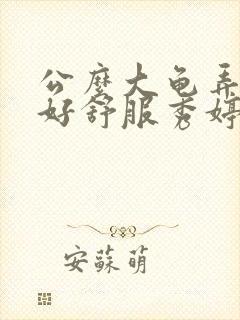 公麽大龟弄
好舒服秀婷
安蘇萌